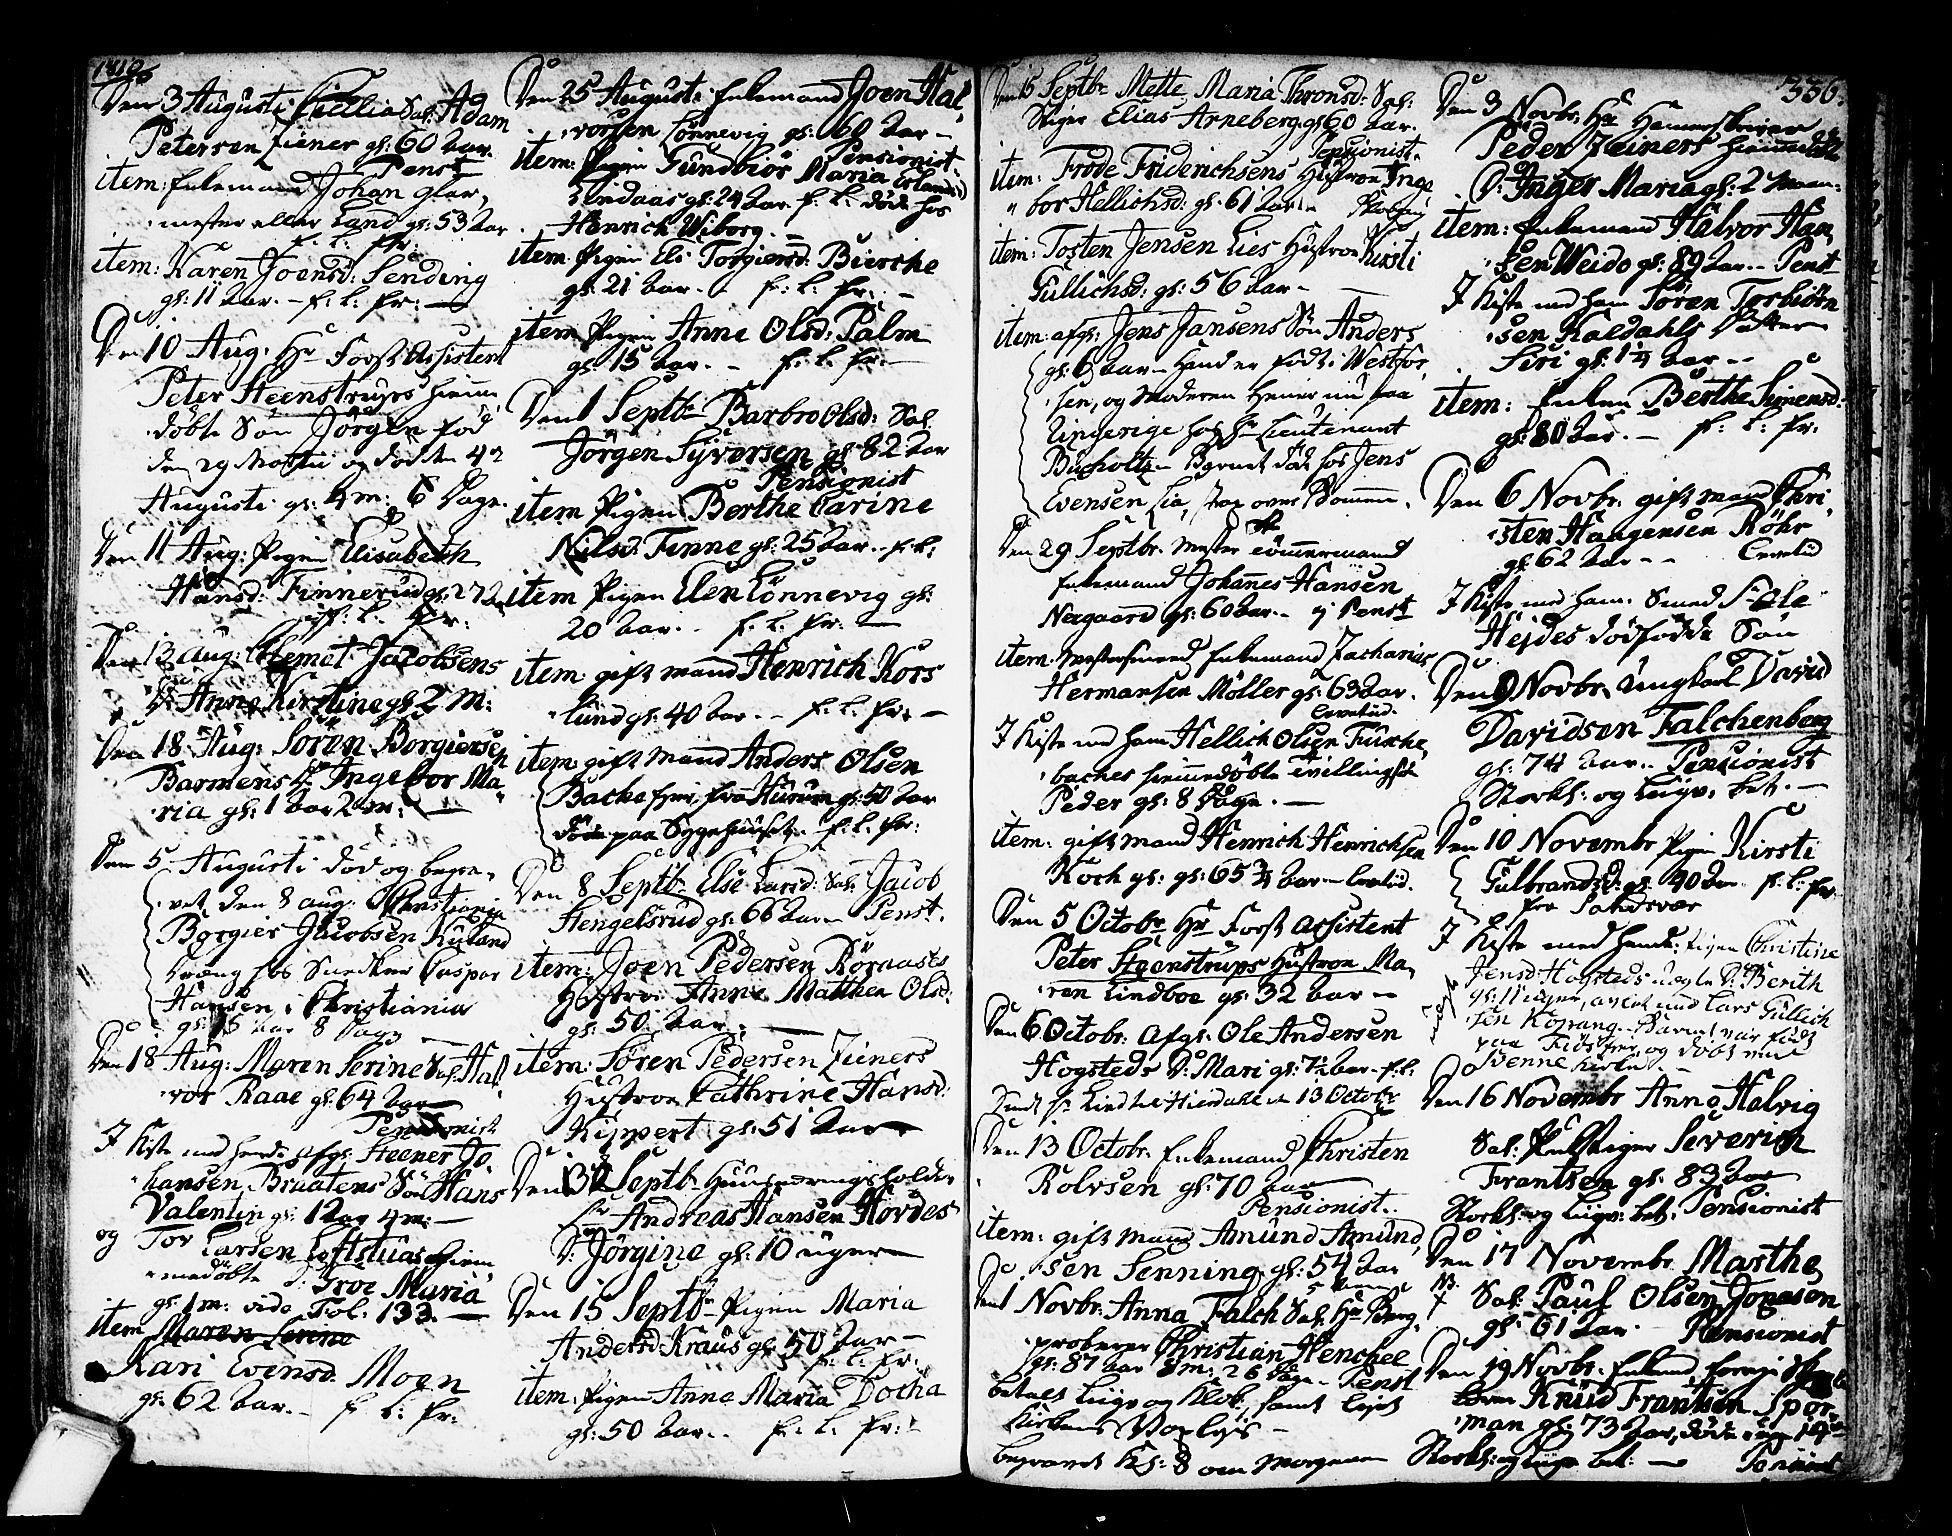 1810
Den 3 Augusti Cicillia Sal: Adam
Petersen Ziener gl: 60 Aar.
Penst
item: Enkemand Johan glar,
mester eller Land gl: 53 Aar
f: L: fr:
item: Karen Joensd: Sending
gl: 11 Aar. – f: L: fr: —
Den 10 Aug: Hr Forst Assistent
Peter Steenstrups hiem
døbte Søn Jørgen fød
den 29 Martii og død den 4de
Augusti gl: 4 m: 6 Dage.
Den 11 Aug: Pigen Elisabeth
Hansd: Finnerud gl: 27 Aar
f: L: fr:
Den 13 Aug: Clemet Jacobsens
D: Anne Kirstine gl: 2 M:
Den 18 Aug: Sören Borgiersen
Barmens D: Ingebor Ma,
ria gl: 1 Aar 2 m: —
Den 5 Augusti død og begra,
vet den 8 aug: Christiania
Börgier Jacobsen Ruland
dreng hos Snedker Caspar
Hansen i Christiania
gl: 15 Aar 8 Dage
Den 18 Aug: Maren Serine Sal: Hal
vor Raae gl: 64 Aar
Pensionist
J Kiste med hende afgl: Steener Jo
hansen Braatens Søn Hans
Valentin gl: 1 Aar 4 m: —
og Tor Larsen Loftstuas hiem
medøbte D: Troe Maria
gl: 1 m: vide Fol: 133. —
item Maren Serene
Kari Evensd: Moen
gl: 62 Aar. – f: L: fr:
Den 25 Augusti Enkemand Joen Hal,
vorsen Lönnevig gl: 60 Aar –
Pensionist
item: Pigen Gundbiör Maria Erlandsd
Lindaas gl: 24 Aar. f: L: døde hos
Henrich Wiborg. –
item Pigen Eli Torgiersd: Bierche
gl: 21 Aar – f: L: fr: –
item Pigen Anne Olsd: Palm
gl: 15 Aar. – f: L: fr: –
Den 1 Septbr Barbro Olsd: Sal.
Jörgen Syversen gl: 82 Aar
Pensionist
item Pigen Berthe Carine
Nilsd: Tinne gl: 25 Aar. f: L:
item Pigen Elen Lönnevig gl:
20 Aar. – f: L: fr: —
item gift mand Henrich Kors
lund gl: 40 Aar. – f: L: fr: –
item gift Mand Anders Olsen
Bache hiem fra Hurum gl: 50 Aar
døde paa Sygehuuset. f: L: fr:
Den 8 Septbr Else Larsd: Sal: Jacob
Hengelsrud gl: 66 Aar Penst.
item: Joen Pedersen Röraases
Hustroe Anne Matthea Olsd:
gl: 50 Aar. —
item: Sören Pedersen Zieners
Hustroe Cathrine Hansd:
Kippert gl: 51 Aar
Den 13 Septbr Huusværingsholder
Hr Andreas Hansen Hovdes
D: Jörgine gl: 10 uger
Den 15 Septbr Pigen Maria
Andersd: Kraus gl: 50 Aar –
f: L: fr:
item: Pigen Anne Maria Docha
gl: 50 Aar. f: L: fr:
Den 15 Septbr Mette Maria Thronsd: Sal:
Stiger Elias Arneberg gl: 60 Aar.
Pensionist.
item: Frode Friderichsens Hustroe Inge
bor Hellichsd: gl: 61 Aar.
item: Tosten Jensen Lies Hustroe Kirsti
Gullichsd: gl: 56 Aar –
item: afgl: Jens Jansens Søn Anders
gl: 6 Aar – Hand er fød i Westfos,
sen, og Moderen tiener nu paa
Ringerige hos Hr Lieutenant
Bucholtz – Barnet død hos Jens
Evensen Lia,
Den 29 Septbr. Mester Tömmermand
Enkemand Johannes Hansen
Neegaard gl: 60 Aar. – ej Penst
item. Mestersmed Enkemand Zacharias
Hermansen Möller gl: 63 Aar.
J Kiste med ham Hellich Olsen Furche,
baches hiemedøbte tvillingsøn
Peder gl: 8 Dage. —
item: gift mand Henrich Henrichsen
Koch gl: gl: 65 3/4 Aar
Den 5 Octobr Hr Forst Assistent
Peter Steenstrups Hustroe Ma,
ren Lindboe gl: 32 Aar –
Den 6 Octobr. Afgl. Ole Andersen
Hogsteds D: Mari gl: 7½ Aar f: L:
13 Octobr
Den 13 Octobr. Enkemand Christen
Rolvsen gl: 70 Aar
Pensionist.
item: gift mand Amund Amund,
sen Senning gl: 54 Aar
Den 1 Novbr: Anna Falch Sal: Hr Berg,
proberer Christian Henchee
gl: 87 Aar 8 m: 26 Dage – Penst
betalt Liigv og Klok, samt
Kirkens
begravet Kl: 8 om Morgenen
336.
Den 3 Novbr. Hr Hammerskriver
Peder Zeiners hiemedøbte
D: Inger Maria gl: 2 Maan:
item: Enkemand Halvor Han,
sen Weido gl: 89 Aar. – Penst
J Kiste med ham Sören Torbiörn
sen Kaldahls Datter
Siri gl: 1¼ Aar –
item: Enken Berthe Simensd:
gl: 80 Aar. – f: L: fr.
Den 6 Novbr. gift mand Chri,
sten Haagensen Röhr
gl: 62 Aar – –
J Kiste med ham. Smed S: Ole
Hejdes dødfødde Søn
Den 9 Novbr. Ungkarl David
Davidsen Falchenberg
gl: 74 Aar.. Pensionist
Storkl: og Liigv. bet. —
Den 10 Novembr Pigen Kirsti
Gulbrandsd: gl: 40 Aar f: L: fr:
fra Sandsvær
J Kiste med hende: Pigen Christine
Jensd: Hogsteds uægte D: Berith
gl: 11 uger, avlet med Lars Gullich
sen Koprang. Barnet var født
paa og døbt ved
Svenne kirke. –
Den 16 Novembr Anne Helvig
Sal: Stiger Severin
Frantsen gl: 83 Aar
Storkl: og Liigv: bet: Pensionist
Den 17 Novembr Marthe
Sal: Paul Olsen Jonasen
gl: 61 Aar. Pensionist
Den 19 Novbr. Enkemd
Knud Frantsen Spor,
man gl: 73 Aar, døde
Storkl: og Liigv bet: — Pensionist